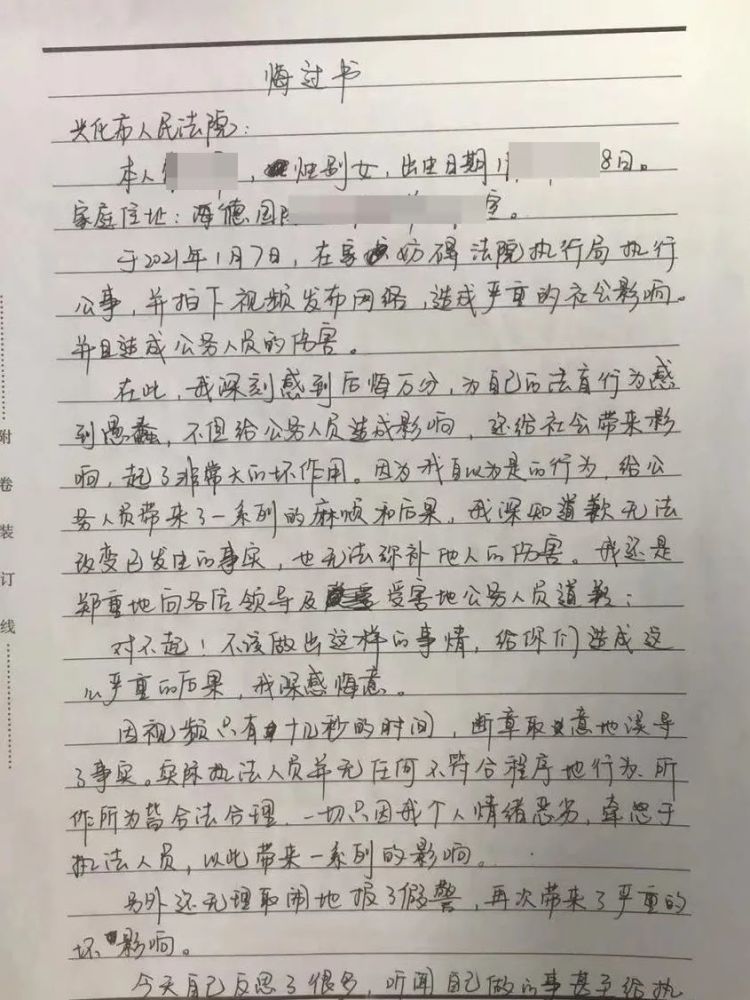 悔过书
兴化市人民法院：
本人，性别女，出生日期1 8日。
家庭住址：海德国 室。
于2021年1月7日，在家妨碍法院执行局执行
公事，并拍下视频发布网络，造成严重的社会影响。
并且造成公务人员的伤害。
在此，我深刻感到后悔万分，为自己的法盲行为感
到愚蠢，不但给公务人员造成影响，还给社会带来影
响，起了非常大的坏作用。因为我自以为是的行为，给公
务人员带来了一系列的麻烦和后果，我深知道歉无法
改变已发生的事实，也无法弥补他人的伤害。我还是
郑重地向各位领导及受害地公务人员道歉：
对不起！不该做出这样的事情，给你们造成这
么严重的后果，我深感悔意。
因视频只有十几秒的时间，断章取意地误导
了事实。实际执法人员并无任何不符合程序地行为、所
作所为皆合法合理，一切只因我个人情绪恶劣，牵怒于
执法人员，以此带来一系列的影响。
另外还无理取闹地报了假警，再次带来了严重的
坏影响。
今天自己反思了很多，听闻自己做的事甚至给执
附卷装订线